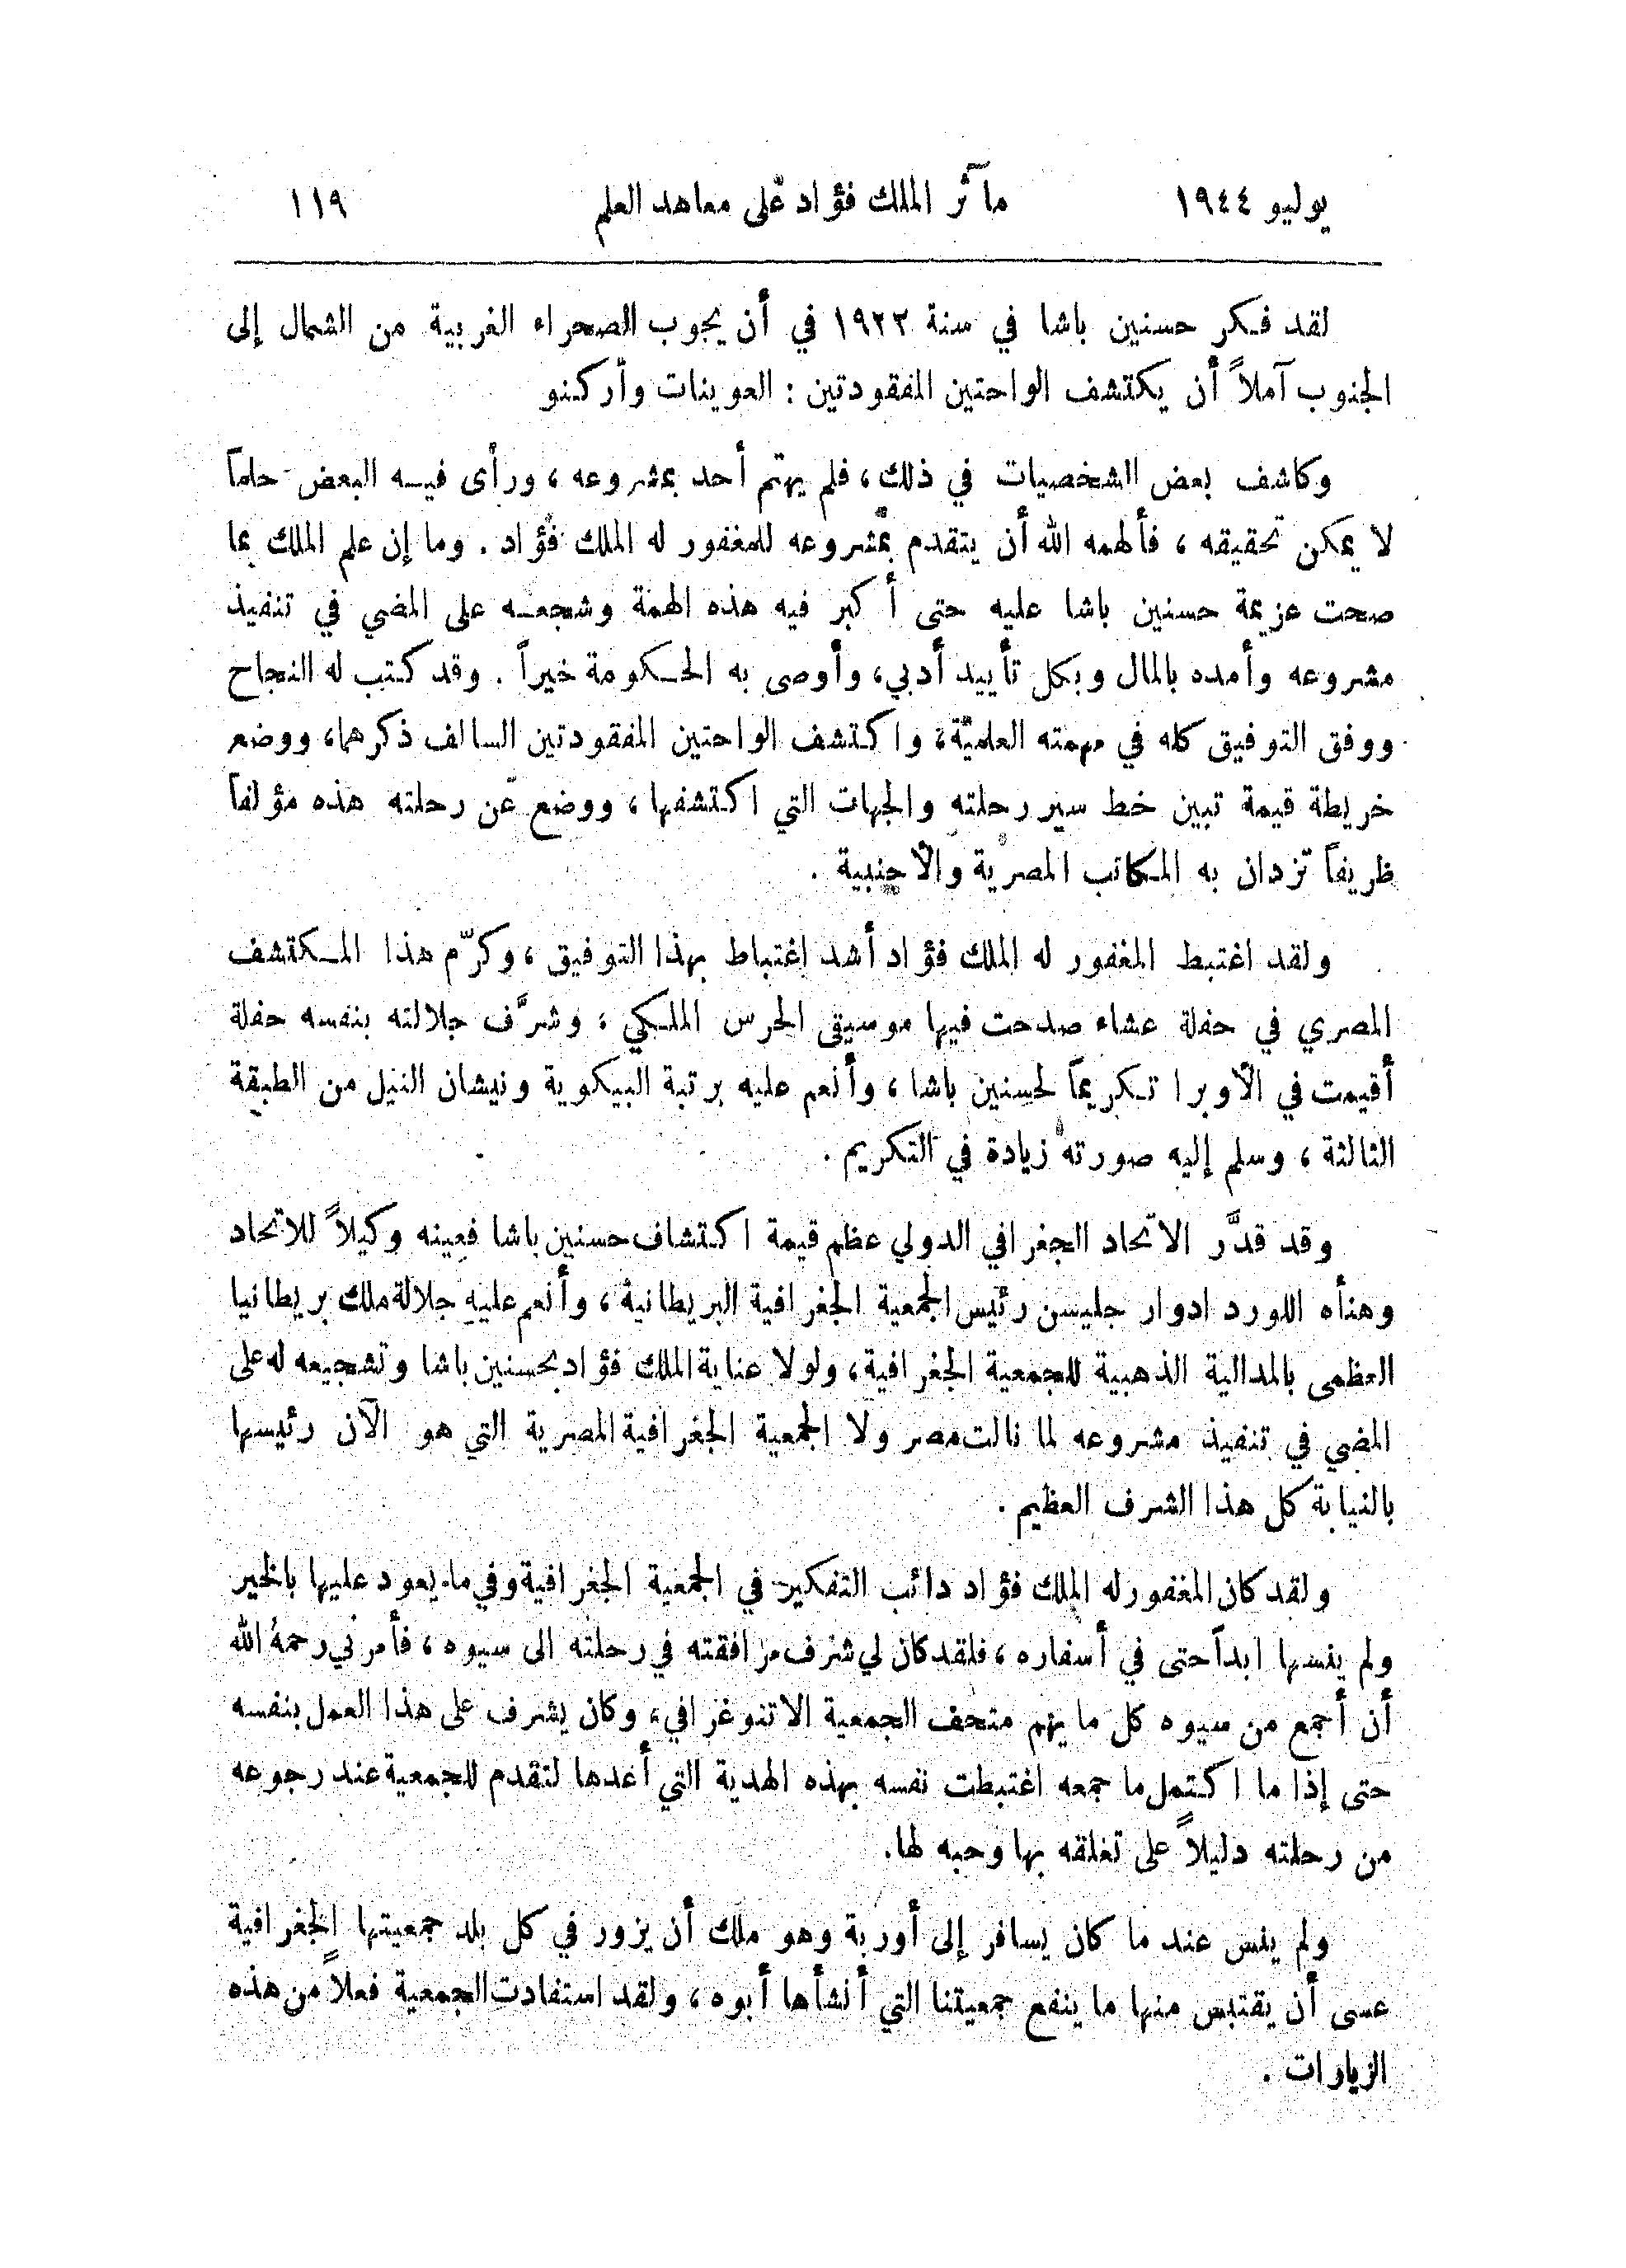 يوليو ١٩٤٤ مآثر الملك فؤاد على معاهد العلم ١١٩
لقد فكر حسنين باشا في سنة ١٩٢٣ في أن يجوب الصحراء الغربية من الشمال إلى
الجنوب آملاً أن يكتشف الواحتين المفقودتين : العوينات وأركنو
وكاشف بعض الشخصيات في ذلك، فلم يهتم أحد بمشروعه ، ورأى فيه البعض حلماً
لا يمكن تحقيقه ، فألهمه الله أن يتقدم بمشروعه للمغفور له الملك فؤاد . وما إن علم الملك بما
صحت عزيمة حسنين باشا عليه حتى أكبر فيه هذه الهمة وشجعه على المضي في تنفيذ
مشروعه وأمده بالمال وبكل تأييد أدبي، وأوصى به الحكومة خيراً . وقد كتب له النجاح
ووفق التوفيق كله في مهمته العلمية، واكتشف الواحتين المفقودتين السالف ذكرهما، ووضع
خريطة قيمة تبين خط سير رحلته والجهات التي اكتشفها ، ووضع عن رحلته هذه مؤلفاً
ظريفاً تزدان به المكاتب المصرية والأجنبية .
ولقد اغتبط المغفور له الملك فؤاد أشد اغتباط بهذا التوفيق ، وكرّم هذا المكتشف
المصري في حفلة عشاء صدحت فيها موسيقى الحرس الملكي ، وشرَّف جلالته بنفسه حفلة
أقيمت في الأوبرا تكريماً لحسنين باشا ، وأنعم عليه برتبة البيكوية ونيشان النيل من الطبقة
الثالثة ، وسلم إليه صورته زيادة في التكريم .
وقد قدَّر الاتحاد الجغرافي الدولي عظم قيمة اكتشاف حسنين باشا فعينه وكيلاً للاتحاد
وهنأه اللورد ادوار جليسن رئيس الجمعية الجغرافية البريطانية ، وأنعم عليه جلالة ملك بريطانيا
العظمى بالمدالية الذهبية للجمعية الجغرافية، ولولا عناية الملك فؤاد بحسنين باشا وتشجيعه له على
المضي في تنفيذ مشروعه لما نالت مصر ولا الجمعية الجغرافية المصرية التي هو الآن رئيسها
بالنيابة كل هذا الشرف العظيم .
ولقد كان المغفور له الملك فؤاد دائب التفكير في الجمعية الجغرافية وفي ما يعود عليها بالخير
ولم ينسها ابداً حتى في أسفاره ، فلقد كان لي شرف مرافقته في رحلته الى سيوه ، فأمرني رحمهُ الله
أن أجمع من سيوه كل ما يهم متحف الجمعية الاتنوغرافي، وكان يشرف على هذا العمل بنفسه
حتى إذا ما اكتمل ما جمعه اغتبطت نفسه بهذه الهدية التي أعدها لتقدم للجمعية عند رجوعه
من رحلته دليلاً على تعلقه بها وحبه لها.
ولم ينس عند ما كان يسافر إلى أوربة وهو ملك أن يزور في كل بلد جمعيتها الجغرافية
عسى أن يقتبس منها ما ينفع جمعيتنا التي أنشأها أبوه ، ولقد استفادت الجمعية فعلاً من هذه
الزيارات .